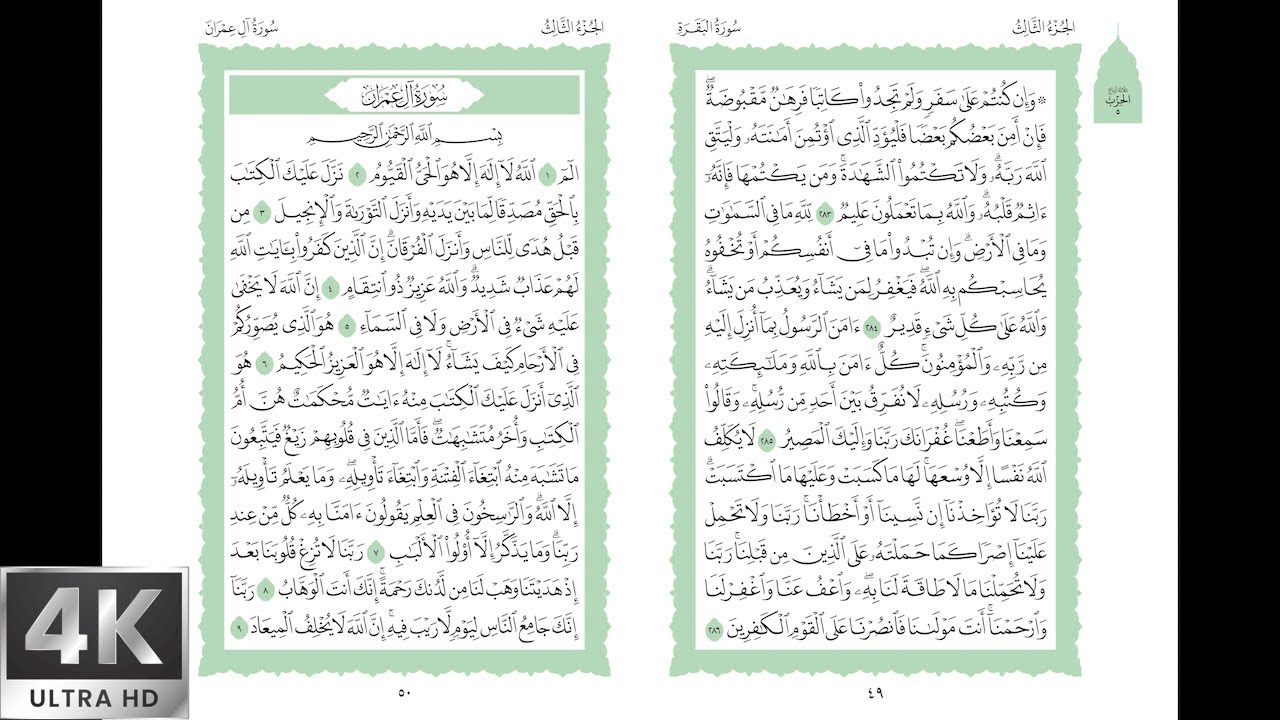 الجُزْءُ الثَّالِثُ
سُورَةُ البَقَرَةِ
الحِزْبُ
٥
۞ وَإِن كُنتُمْ عَلَىٰ سَفَرٍ وَلَمْ تَجِدُوا۟ كَاتِبًا فَرِهَـٰنٌ مَّقْبُوضَةٌ ۖ
فَإِنْ أَمِنَ بَعْضُكُم بَعْضًا فَلْيُؤَدِّ ٱلَّذِى ٱؤْتُمِنَ أَمَـٰنَتَهُۥ وَلْيَتَّقِ
ٱللَّهَ رَبَّهُۥ ۗ وَلَا تَكْتُمُوا۟ ٱلشَّهَـٰدَةَ ۚ وَمَن يَكْتُمْهَا فَإِنَّهُۥٓ
ءَاثِمٌ قَلْبُهُۥ ۗ وَٱللَّهُ بِمَا تَعْمَلُونَ عَلِيمٌ ٢٨٣ لِّلَّهِ مَا فِى ٱلسَّمَـٰوَٰتِ
وَمَا فِى ٱلْأَرْضِ ۗ وَإِن تُبْدُوا۟ مَا فِىٓ أَنفُسِكُمْ أَوْ تُخْفُوهُ
يُحَاسِبْكُم بِهِ ٱللَّهُ ۖ فَيَغْفِرُ لِمَن يَشَآءُ وَيُعَذِّبُ مَن يَشَآءُ ۗ
وَٱللَّهُ عَلَىٰ كُلِّ شَىْءٍ قَدِيرٌ ٢٨٤ ءَامَنَ ٱلرَّسُولُ بِمَآ أُنزِلَ إِلَيْهِ
مِن رَّبِّهِۦ وَٱلْمُؤْمِنُونَ ۚ كُلٌّ ءَامَنَ بِٱللَّهِ وَمَلَـٰٓئِكَتِهِۦ
وَكُتُبِهِۦ وَرُسُلِهِۦ لَا نُفَرِّقُ بَيْنَ أَحَدٍ مِّن رُّسُلِهِۦ ۚ وَقَالُوا۟
سَمِعْنَا وَأَطَعْنَا ۖ غُفْرَانَكَ رَبَّنَا وَإِلَيْكَ ٱلْمَصِيرُ ٢٨٥ لَا يُكَلِّفُ
ٱللَّهُ نَفْسًا إِلَّا وُسْعَهَا ۚ لَهَا مَا كَسَبَتْ وَعَلَيْهَا مَا ٱكْتَسَبَتْ ۗ
رَبَّنَا لَا تُؤَاخِذْنَآ إِن نَّسِينَآ أَوْ أَخْطَأْنَا ۚ رَبَّنَا وَلَا تَحْمِلْ
عَلَيْنَآ إِصْرًا كَمَا حَمَلْتَهُۥ عَلَى ٱلَّذِينَ مِن قَبْلِنَا ۚ رَبَّنَا
وَلَا تُحَمِّلْنَا مَا لَا طَاقَةَ لَنَا بِهِۦ ۖ وَٱعْفُ عَنَّا وَٱغْفِرْ لَنَا
وَٱرْحَمْنَآ ۚ أَنتَ مَوْلَىٰنَا فَٱنصُرْنَا عَلَى ٱلْقَوْمِ ٱلْكَـٰفِرِينَ ٢٨٦
٤٩
الجُزْءُ الثَّالِثُ
سُورَةُ آلِ عِمْرَانَ
سُورَةُ آلِ عِمْرَانَ
بِسْمِ ٱللَّهِ ٱلرَّحْمَـٰنِ ٱلرَّحِيمِ
الٓمٓ ١ ٱللَّهُ لَآ إِلَـٰهَ إِلَّا هُوَ ٱلْحَىُّ ٱلْقَيُّومُ ٢ نَزَّلَ عَلَيْكَ ٱلْكِتَـٰبَ
بِٱلْحَقِّ مُصَدِّقًا لِّمَا بَيْنَ يَدَيْهِ وَأَنزَلَ ٱلتَّوْرَىٰةَ وَٱلْإِنجِيلَ ٣ مِن
قَبْلُ هُدًى لِّلنَّاسِ وَأَنزَلَ ٱلْفُرْقَانَ ۗ إِنَّ ٱلَّذِينَ كَفَرُوا۟ بِـَٔايَـٰتِ ٱللَّهِ
لَهُمْ عَذَابٌ شَدِيدٌ ۗ وَٱللَّهُ عَزِيزٌ ذُو ٱنتِقَامٍ ٤ إِنَّ ٱللَّهَ لَا يَخْفَىٰ
عَلَيْهِ شَىْءٌ فِى ٱلْأَرْضِ وَلَا فِى ٱلسَّمَآءِ ٥ هُوَ ٱلَّذِى يُصَوِّرُكُمْ
فِى ٱلْأَرْحَامِ كَيْفَ يَشَآءُ ۚ لَآ إِلَـٰهَ إِلَّا هُوَ ٱلْعَزِيزُ ٱلْحَكِيمُ ٦ هُوَ
ٱلَّذِىٓ أَنزَلَ عَلَيْكَ ٱلْكِتَـٰبَ مِنْهُ ءَايَـٰتٌ مُّحْكَمَـٰتٌ هُنَّ أُمُّ
ٱلْكِتَـٰبِ وَأُخَرُ مُتَشَـٰبِهَـٰتٌ ۖ فَأَمَّا ٱلَّذِينَ فِى قُلُوبِهِمْ زَيْغٌ فَيَتَّبِعُونَ
مَا تَشَـٰبَهَ مِنْهُ ٱبْتِغَآءَ ٱلْفِتْنَةِ وَٱبْتِغَآءَ تَأْوِيلِهِۦ ۗ وَمَا يَعْلَمُ تَأْوِيلَهُۥٓ
إِلَّا ٱللَّهُ ۗ وَٱلرَّٰسِخُونَ فِى ٱلْعِلْمِ يَقُولُونَ ءَامَنَّا بِهِۦ كُلٌّ مِّنْ عِندِ
رَبِّنَا ۗ وَمَا يَذَّكَّرُ إِلَّآ أُو۟لُوا۟ ٱلْأَلْبَـٰبِ ٧ رَبَّنَا لَا تُزِغْ قُلُوبَنَا بَعْدَ
إِذْ هَدَيْتَنَا وَهَبْ لَنَا مِن لَّدُنكَ رَحْمَةً ۚ إِنَّكَ أَنتَ ٱلْوَهَّابُ ٨ رَبَّنَآ
إِنَّكَ جَامِعُ ٱلنَّاسِ لِيَوْمٍ لَّا رَيْبَ فِيهِ ۚ إِنَّ ٱللَّهَ لَا يُخْلِفُ ٱلْمِيعَادَ ٩
٥٠
4K
ULTRA HD